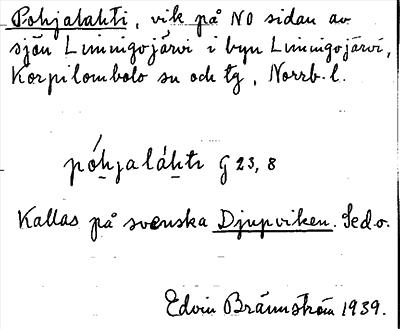 Pohjalahti, vik på NO sidan av
sjön Liminigojärvi i byn Liminigojärvi,
Korpilombolo sn och tg, Norrb. l.
póhjaláhti G 23, 8
Kallas på svenska Djupviken. Se d.o.
Edvin Brännström 1939.